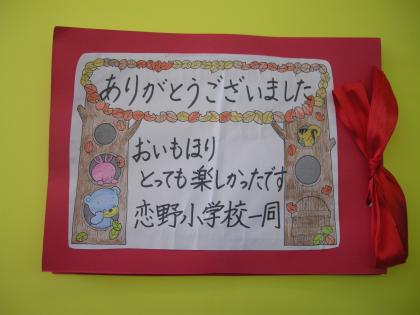 ありがとうございました
おいもほり
とっても楽しかったです
恋野小学校一同